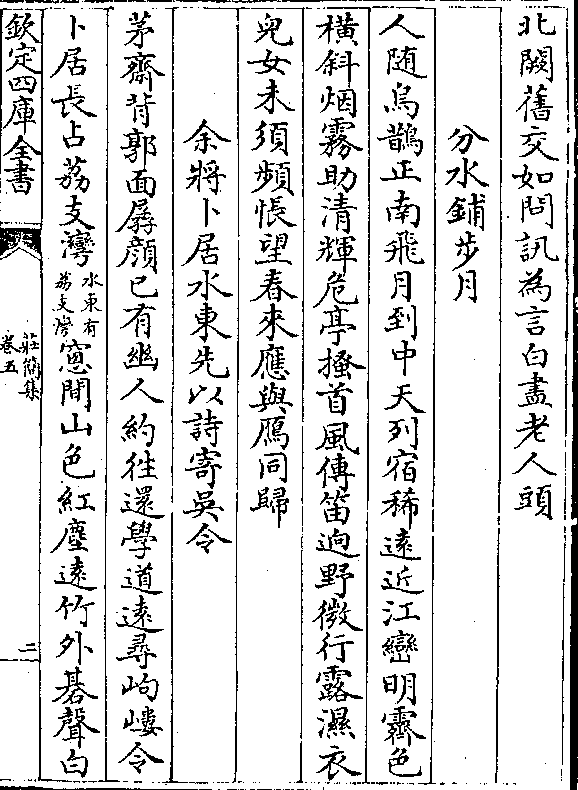 北闕舊交如問訊為言白盡老人頭
分水鋪步月
人隨烏鵲正南飛月到中天列宿稀遠近江巒明霽色
橫斜烟霧助清輝危亭搔首風傳笛逈野微行露濕衣
兒女未須頻悵望春來應與鴈同歸
余將卜居水東先以詩寄吳令
茅齋背郭面孱顔已有幽人約往還學道遠尋岣嶁令
卜居長占荔支灣水東有荔支灣窻間山色紅塵遠竹外碁聲白
欽定四庫全書
莊簡集
卷五
二